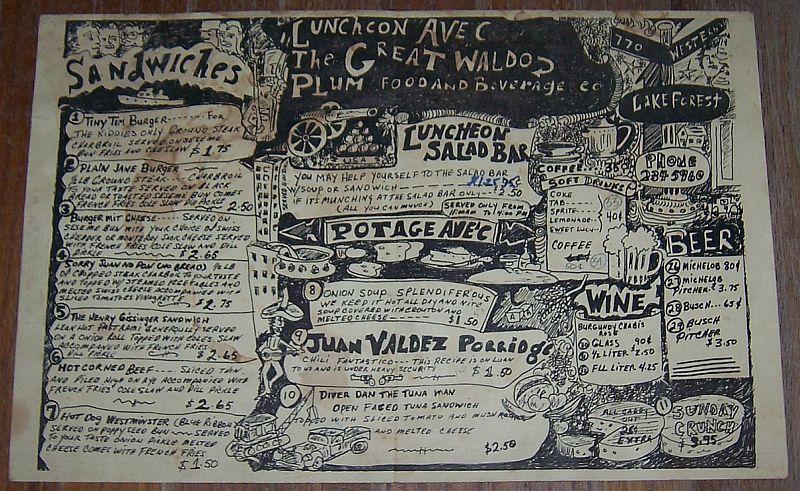 LUNCHEON AVEC
THE GREAT WALDO
PLUM FOOD AND BEVERAGE CO
770 WESTERN
LAKE FOREST
PHONE
234 5960
SANDWICHES
1 TINY TIM BURGER ---- FOR
THE KIDDIES ONLY GROUND STEAK
CHARBROIL SERVED ON SESAME BUN
PAN FRIES AND COLE SLAW $1.75
2 PLAIN JANE BURGER
1/2 LB GROUND STEAK --- CHARBROIL
TO YOUR TASTE SERVED ON BLACK
BREAD OR TOASTED SESEME BUN COMES
FRENCH FRIES COLE SLAW DILL PICKLE
2.50
3 BURGER MIT CHEESE --- SERVED ON
SESEME BUN WITH YOUR CHOICE OF SWISS
CHEDDER OR MONTEREY JACK CHEESE SERVED
WITH FRENCH FRIES COLE SLAW AND DILL
PICKLE
$2.65
4 SORRY JUAN NO PAN (NO BREAD) 1/2 LB
OF CHOPPED STEAK COOKED TO YOUR TASTE
AND TOPPED W/ STEAMED VEGETABLES AND
MELTED SWISS CHEESE ACCOMPANIED WITH
SLICED TOMATOES VINAGRETTE
$2.75
5 THE HENRY GISSINGER SANDWICH
LEAN HOT PASTRAMI GENEROUSLY SERVED
ON A ONION ROLL TOPPED WITH COLE SLAW
ACCOMPANIED WITH FRENCH FRIES
DILL PICKLE $2.65
6 HOT CORNED BEEF --- SLICED THIN
AND PILED HIGH ON RYE ACCOMPANIED WITH
FRENCH FRIES COLE SLAW AND DILL PICKLE
$2.65
7 HOT DOG WESTMINSTER (BLUE RIBBON)
SERVED ON POPPYSEED BUN --- SERVED
TO YOUR TASTE ONION PICKLE MELTED
CHEESE COMES WITH FRENCH FRIES
$1.50
USA
LUNCHEON
SALAD BAR
YOU MAY HELP YOURSELF TO THE SALAD BAR
W/SOUP OR SANDWICH
IF IT'S MUNCHING AT THE SALAD BAR ONLY --- 2.50
(ALL YOU CAN MUNCH)
SERVED ONLY FROM
11:00 AM TO 4:00 PM
POTAGE AVEC
8 ONION SOUP SPLENDIFEROUS
WE KEEP IT HOT ALL DAY AND WITH
SOUP COVERED WITH CROUTON AND
MELTED CHEESE
$1.50
9 JUAN VALDEZ PORRIDGE
CHILI FANTASTICO --- THIS RECIPE IS ON LOAN
TO US AND IS UNDER HEAVY SECURITY
$1.50
10 DIVER DAN THE TUNA MAN
OPEN FACED TUNA SANDWICH
TOPPED WITH SLICED TOMATO AND MUSHROOMS
AND MELTED CHEESE
$2.50
COFFEE
SOFT DRINKS
COKE
TAB
SPRITE
LEMONADE
SWEET LUCY
40¢
COFFEE
WINE
BURGUNDY CHABLIS
ROSÉ
GLASS 90¢
1/2 LITER 2.50
FULL LITER 4.25
BEER
26 MICHELOB 80¢
27 MICHELOB
PITCHER 3.75
28 BUSCH 65¢
29 BUSCH
PITCHER
$3.50
EXTRA
11
SUNDAY
CRUNCH
3.95